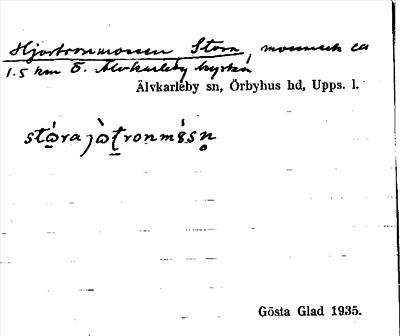 Hjortronmossen Stora, mossmark ca
1.5 km Ö. Älvkarleby kyrka
Älvkarleby sn, Örbyhus hd, Upps. l.
stώ̲ra jòt̲ronmósn̥
Gösta Glad 1935.